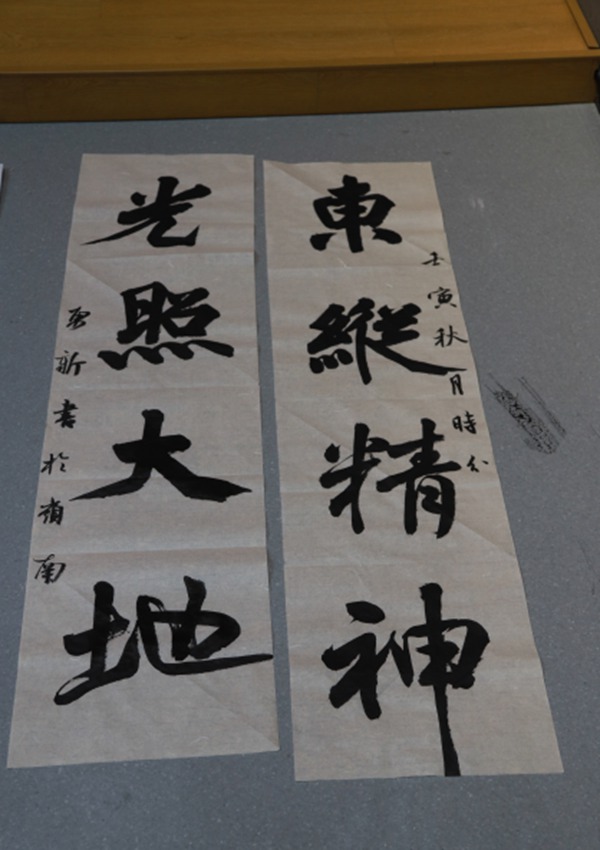 壬寅秋月時分
東縱精神
光照大地
亞新書於嶺南